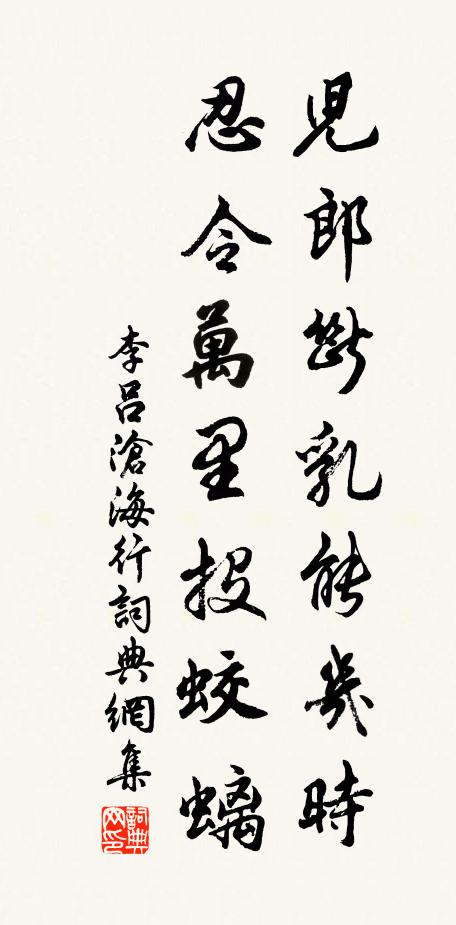 兒郎斷乳能幾時
忍令萬里投蛟螭
李呂滄海行詞典網集
詞典網印